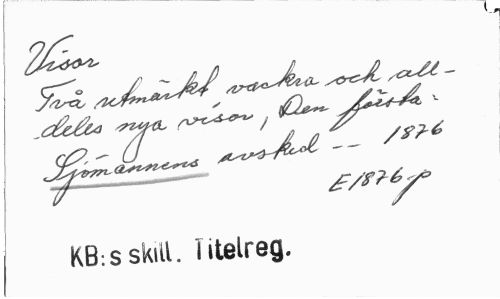 Visor
Två utmärkt vackra och all-
deles nya visor, Den första:
Sjömannens avsked -- 1876
E1876p
KB:s skill. Titelreg.